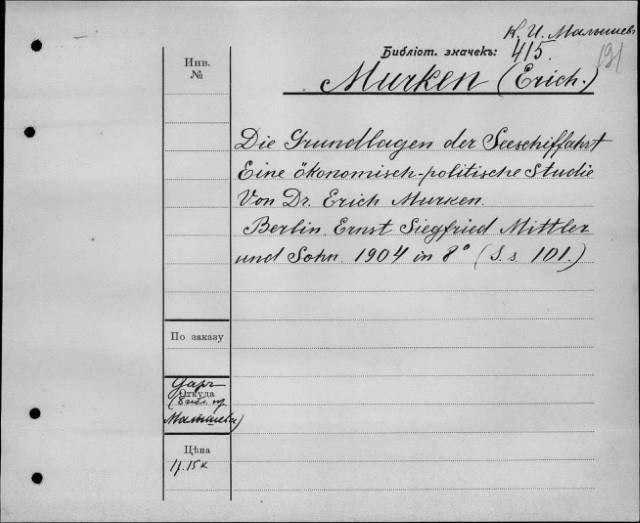 К. И. Малышев
Библіот. значекъ: 415.
191
Инв.
№
Murken (Erich.)
Die Grundlagen der Seeschiffahrt
Eine ökonomisch-politische Studie
Von Dr. Erich Murken.
Berlin. Ernst Siegfried Mittler
und Sohn. 1904 in 8° (S. s. 101.)
По заказу
Даръ
Откуда
(Библ. пр
Малышева)
Цѣна
15к